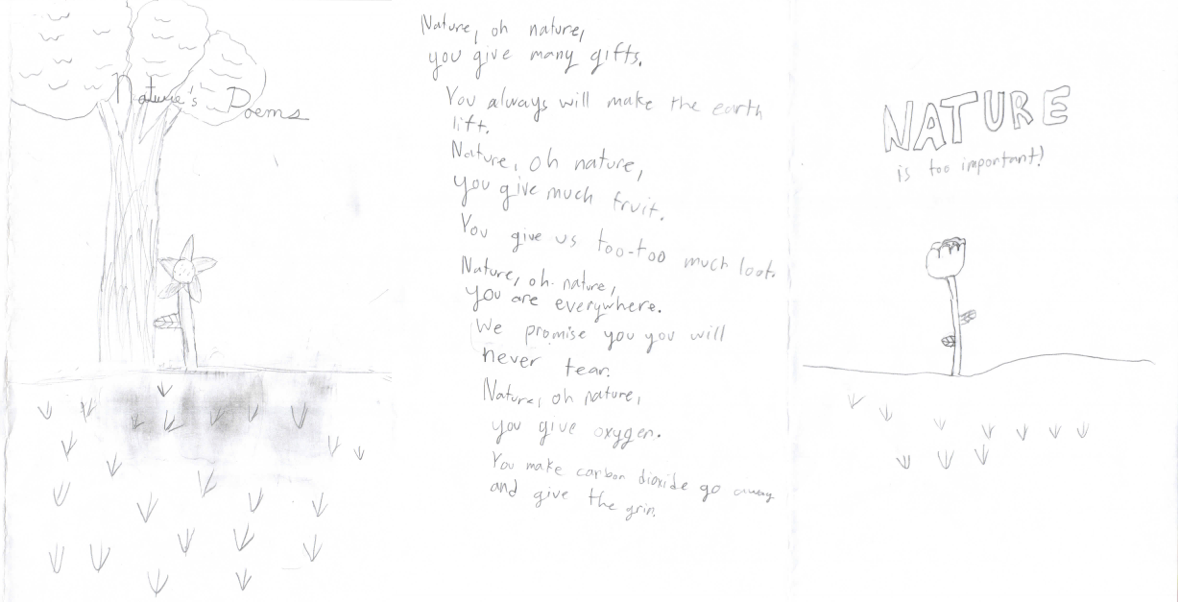 Nature's Poems
Nature, oh nature,
you give many gifts.
You always will make the earth
lift.
Nature, oh nature,
you give much fruit.
You give us too-too much loot.
Nature, oh nature,
you are everywhere.
We promise you you will
never tear.
Nature, oh nature,
you give oxygen.
You make carbon dioxide go away
and give the grin.
NATURE
is too important!